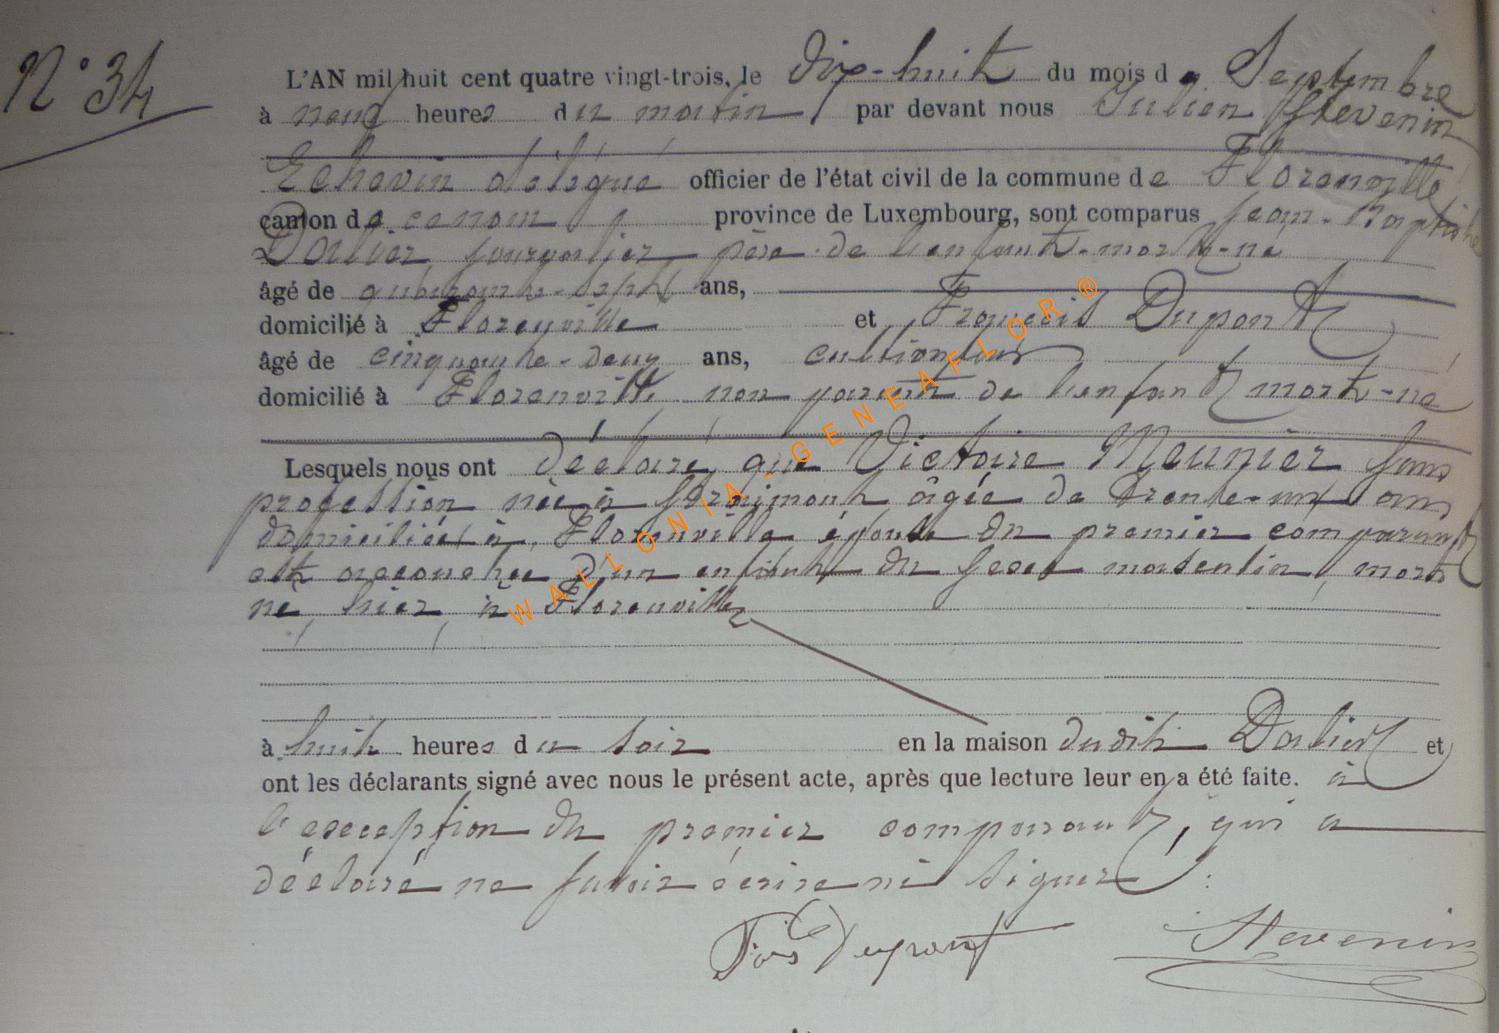 N° 34
L'AN mil huit cent quatre vingt-trois, le dix-huit du mois de Septembre
à neuf heures du matin par devant nous Julien Stevenin
Echevin délégué officier de l'état civil de la commune de Florenville
canton de province de Luxembourg, sont comparus Jean-Baptiste
journalier père de l'enfant-mort-né
âgé de quarante-sept ans,
domicilié à Florenville et François Dupont
âgé de cinquante-deux ans, cultivateur
domicilié à Florenville, non parent de l'enfant mort-né
Lesquels nous ont déclaré que Victoire Meunier sans
profession née à âgée de trente-un ans
domiciliée à Florenville épouse du premier comparant
est accouchée d'un enfant du sexe masculin, mort
né hier à Florenville
à huit heures du soir en la maison dudit et
ont les déclarants signé avec nous le présent acte, après que lecture leur en a été faite. à
l'exception du premier comparant, qui a
déclaré ne savoir écrire ni signer.
Fois Dupont Stevenin
WALLONIA-GENEAFLOR ®